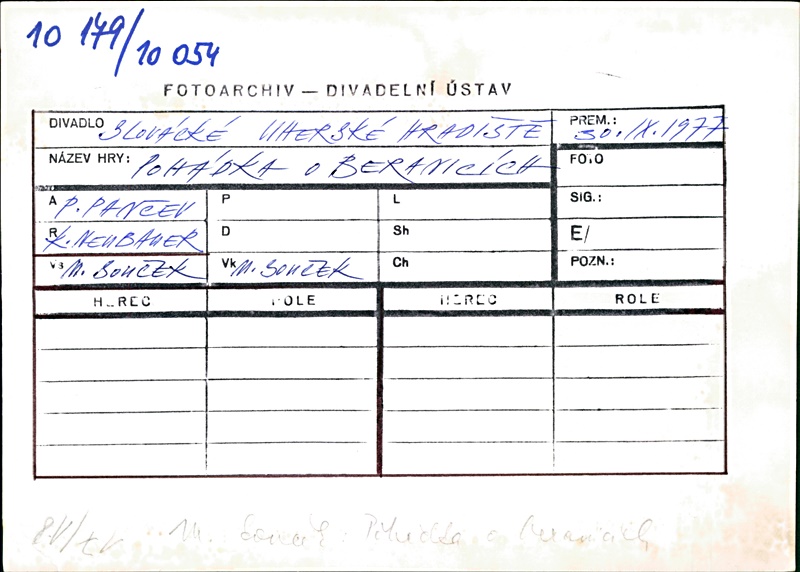 10 179/10 054
FOTOARCHIV — DIVADELNÍ ÚSTAV
DIVADLO SLOVÁCKÉ UHERSKÉ HRADIŠTĚ PREM.: 30.IX.1977
NÁZEV HRY: POHÁDKA O BERANICÍCH FOTO
A P. PANČEV P L SIG.:
R K. NEUBAUER D Sh E/
Vs M. SOUČEK Vk M. SOUČEK Ch POZN.:
HEREC ROLE HEREC ROLE
M. Souček: Pohádka o Beranicích